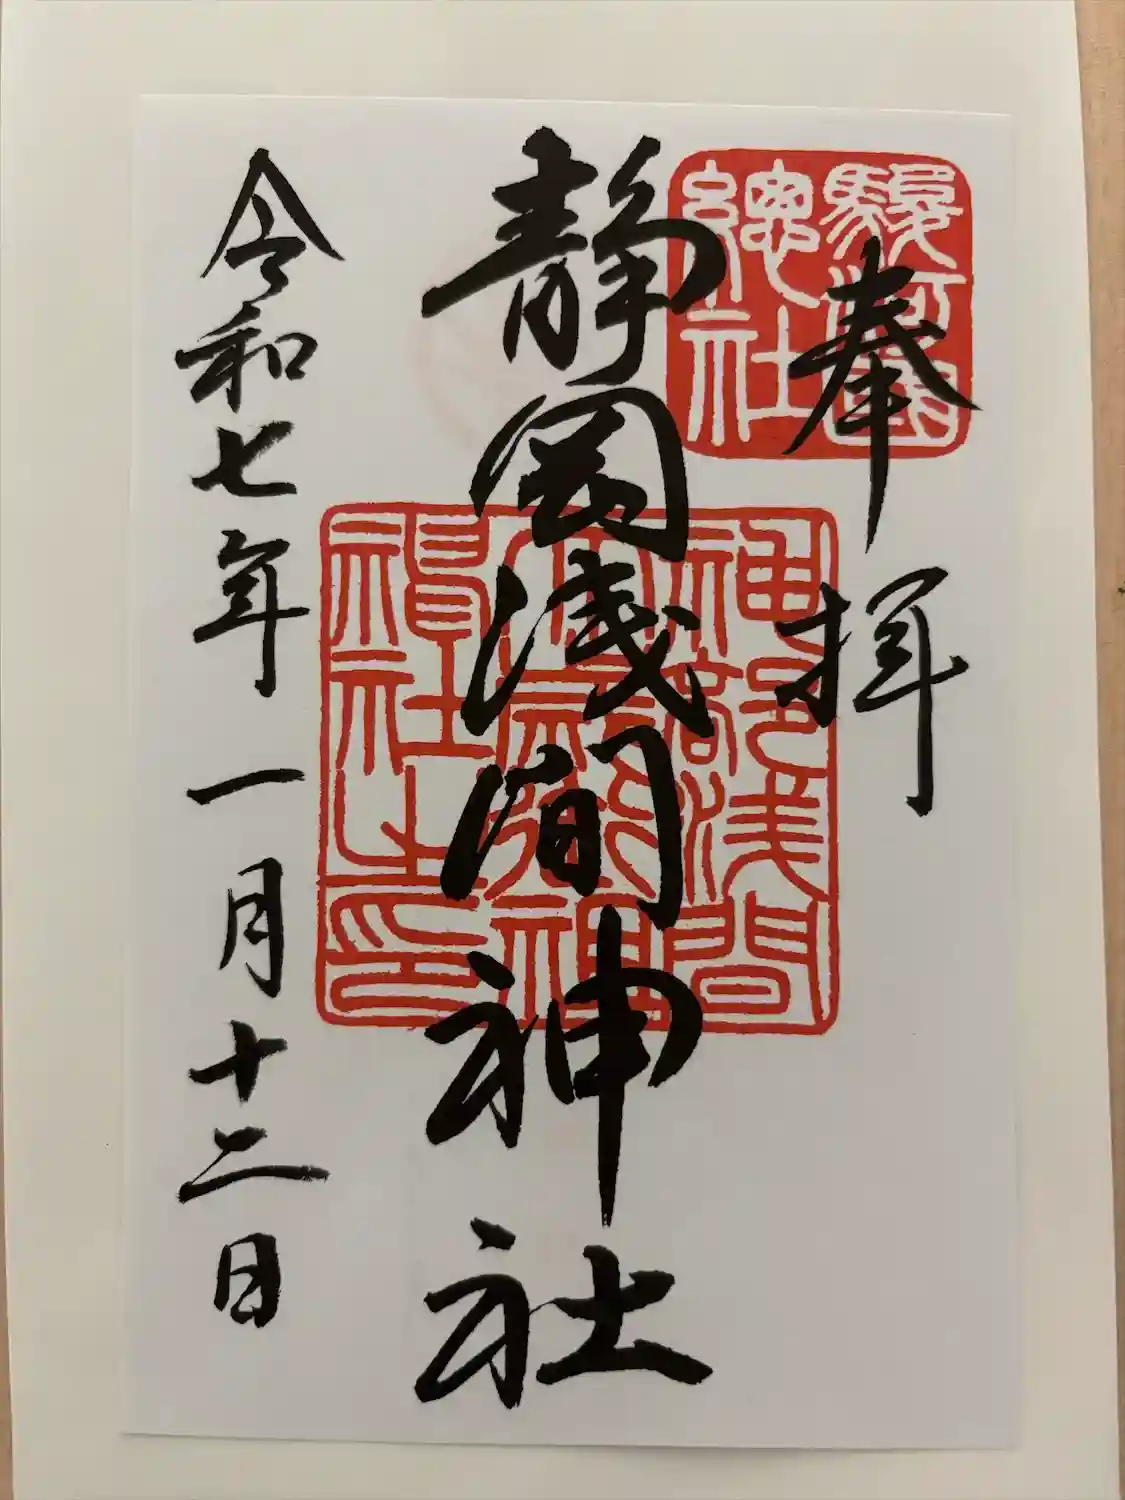 奉拝
駿河國
總社
静岡浅間神社
神部浅間
大歳御祖
神社之印
令和七年一月十二日